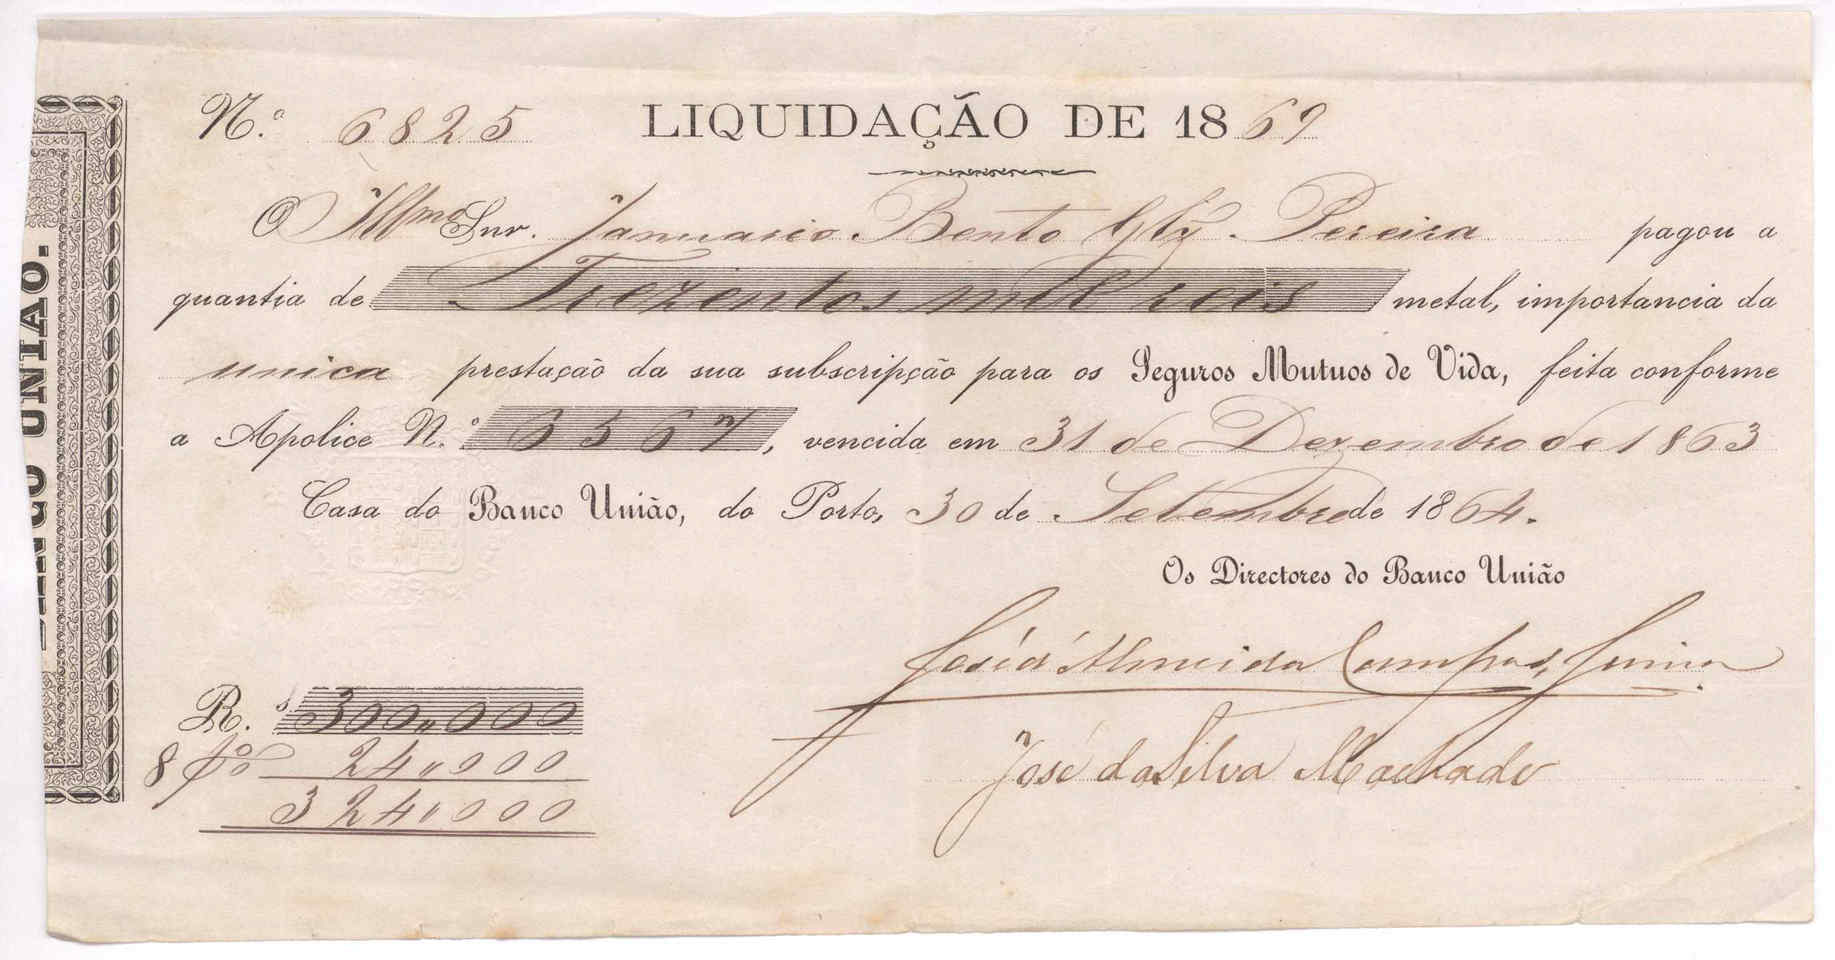 BANCO UNIÃO.
N.º 6825 LIQUIDAÇÃO DE 1869
O Illmo Snr. Januario Bento Pereira pagou a
quantia de Trezentos mil reis metal, importancia da
unica prestação da sua subscripção para os Seguros Mutuos de Vida, feita conforme
a Apolice N.º 6567, vencida em 31 de Dezembro de 1863
Casa do Banco União, do Porto, 30 de Setembro de 1864.
Os Directores do Banco União
José d'Almeida Campos, Junior
José da Silva Machado
R.s 300,,000
8 p% 24,,000
324,000